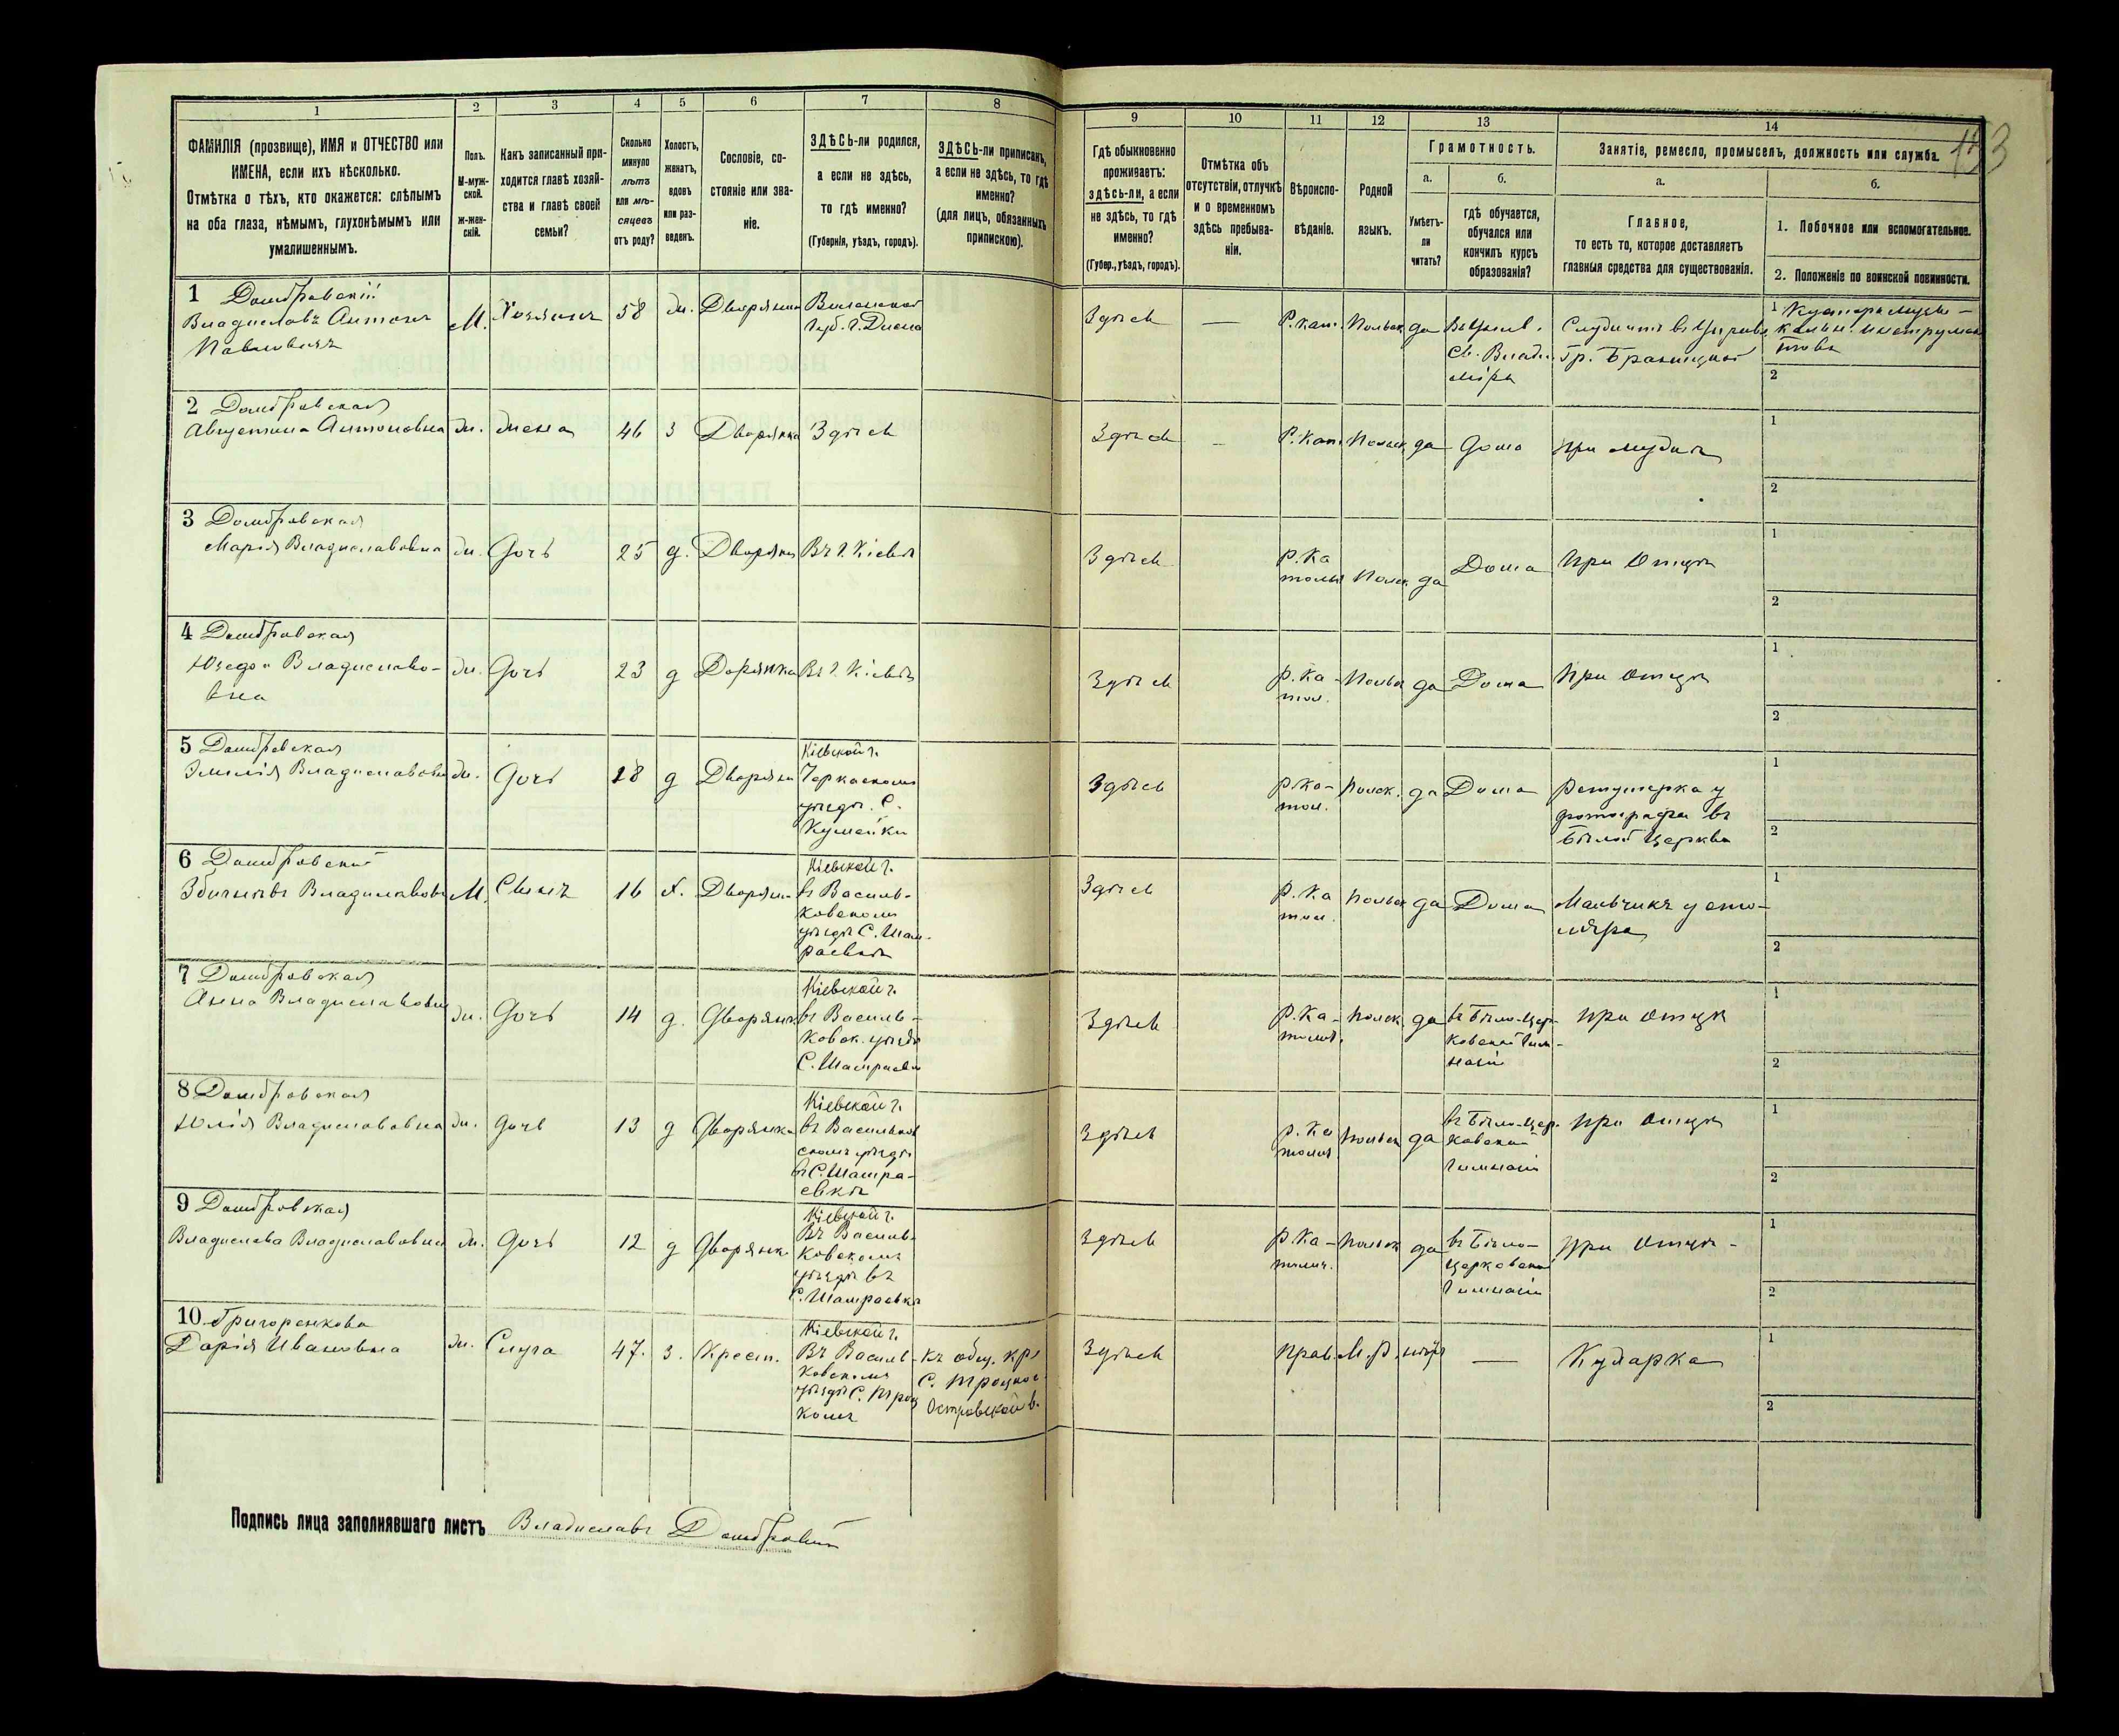 1
2
3
4
5
6
7
8
9
10
11
12
13
14
ФАМИЛІЯ (прозвище), ИМЯ и ОТЧЕСТВО или
ИМЕНА, если ихъ нѣсколько.
Отмѣтка о тѣхъ, кто окажется: слѣпымъ
на оба глаза, нѣмымъ, глухонѣмымъ или
умалишеннымъ.
Полъ.
М-муж-
ской.
ж-жен-
скій.
Какъ записанный при-
ходится главѣ хозяй-
ства и главѣ своей
семьи?
Сколько
минуло
лѣтъ
или мѣ-
сяцевъ
отъ роду?
Холостъ,
женатъ,
вдовъ
или раз-
веденъ.
Сословіе, со-
стояніе или зва-
ніе.
ЗДѢСЬ-ли родился,
а если не здѣсь,
то гдѣ именно?
(Губернія, уѣздъ, городъ).
ЗДѢСЬ-ли приписанъ,
а если не здѣсь, то гдѣ
именно?
(для лицъ, обязанныхъ
припискою).
Гдѣ обыкновенно
проживаетъ:
здѣсь-ли, а если
не здѣсь, то гдѣ
именно?
(Губер., уѣздъ, городъ).
Отмѣтка объ
отсутствіи, отлучкѣ
и о временномъ
здѣсь пребыва-
ніи.
Вѣроиспо-
вѣданіе.
Родной
языкъ.
Грамотность.
а.
Умѣетъ-
ли
читать?
б.
гдѣ обучается,
обучался или
кончилъ курсъ
образованія?
Занятіе, ремесло, промыселъ, должность или служба.
а.
Главное,
то есть то, которое доставляетъ
главныя средства для существованія.
б.
1. Побочное или вспомогательное.
2. Положеніе по воинской повинности.
1 Домбровскій
Владиславъ Антонъ
Павловичъ
М.
Хозяинъ
58
ж.
Дворянинъ
Виленской
губ. г. Дисна
Здѣсь
—
Р. кат.
Польск
да
Св. Влади
міра
Гр. Браницкой
1
2
2 Домбровская
Августина Антоновна
ж.
жена
46
З
Дворянка
Здѣсь
Здѣсь
—
Р. Кат.
Польск
да
Дома
при мужѣ
1
2
3 Домбровская
Марія Владиславовна
ж.
Дочь
25
д.
Дворянк
Въ г. Кіевѣ
Здѣсь
Р. Ка
толич
Польск.
да
Дома
при Отцѣ
1
2
4 Домбровская
Юзефа Владиславо-
вна
ж.
Дочь
23
д
Дорянка
Въ г. Кіевѣ
Здѣсь
р. Ка-
тол.
Польск
да
Дома
При отцѣ
1
2
5 Домбровская
Эмилія Владиславовн
ж.
Дочь
18
д
Дворянк
Кіевской г.
Черкаскомъ
уѣздѣ. С.
Кумейки
Здѣсь
р. Ка-
тол.
Польск.
да
Дома
Ретушерка у
фотографа въ
Бѣлой Церкви
1
2
6 Домбровскій
Збигнѣвъ Владиславов
М.
Сынъ
16
х.
Дворян.
Кіевской г.
въ Василь-
ковскомъ
уѣздѣ С. Шам-
раевкѣ
Здѣсь
р. Ка
тол.
Польск
да
Дома
Мальчикъ у сто-
ляра
1
2
7 Домбровская
Анна Владиславовна
ж.
Дочь
14
д.
Дворянк.
Кіевской г.
въ Василь-
ковск. уѣздѣ
С. Шамраевк
Здѣсь
Р. Ка-
толич.
Польск.
да
въ Бѣло-Цер-
ковской Гим-
назіи
при отцѣ
1
2
8 Домбровская
Юлія Владиславовна
ж.
дочь
13
д
Дворянка
Кіевской г.
въ Васильков
скомъ уѣздѣ
въ С. Шамра-
евкѣ
Здѣсь
р. Ка
толич
Польск
да
въ Бѣло-Цер-
ковской
Гимназіи
при отцѣ
1
2
9 Домбровская
Владислава Владиславовна
ж.
Дочь
12
д
Дворянк
Кіевской г.
Въ Василь-
ковскомъ
уѣздѣ въ
С. Шамраевкѣ
Здѣсь
р. Ка-
толич.
Польск
да
въ Бѣло-
церковской
Гимназіи
при Отцѣ -
1
2
10 Григоренкова
Дарія Ивановна
ж.
Слуга
47.
з.
Крест.
Кіевской г.
Въ Василь-
ковскомъ
уѣздѣ С. Троц
комъ
къ общ. кре
С. Троцкое
Островской в.
Здѣсь
Прав.
М. Р.
нѣтъ
—
Кухарка
1
2
Подпись лица заполнявшаго листъ Владиславъ Домбровскій